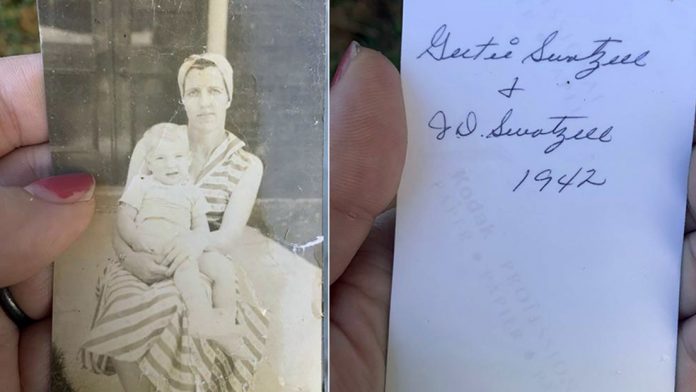 Gertie Swatzell
&
J D. Swatzell
1942
Kodak
PROFESSIONAL
PAPIER